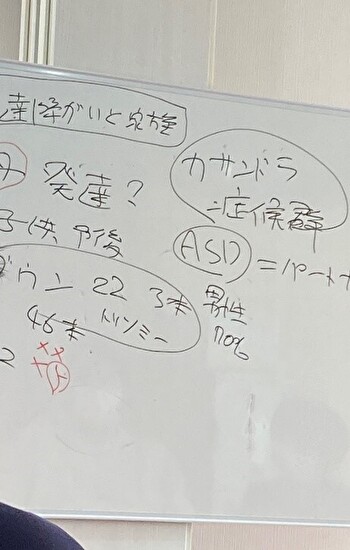 達障がいと家族
発達?
子供 予後
ダウン 22 3本
46本 トリソミー
2
カサンドラ
症候群
ASD = パートナ
男性
70%